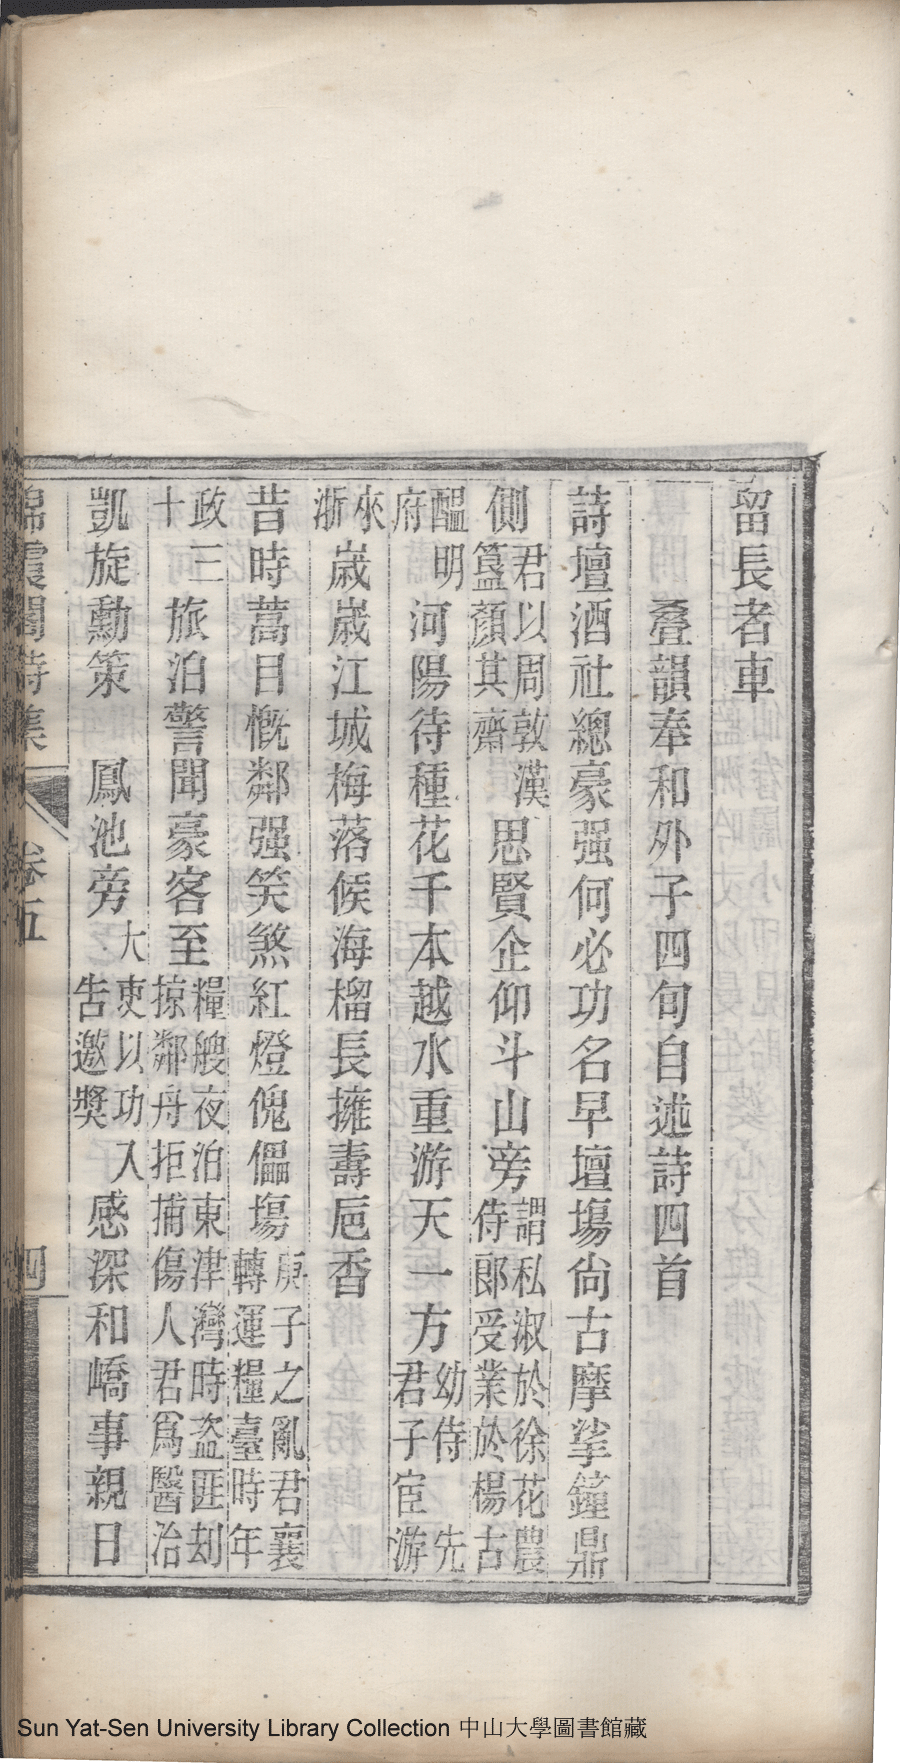 留長者車
叠韻奉和外子四句自述詩四首
詩壇酒社總豪强何必功名早壇塲尙古摩挲鐘鼎
側君以周敦漢簋顏其齋思賢企仰斗山旁謂私淑於徐花農侍郎受業於楊古
醞明府河陽待種花千本越水重游天一方幼侍 先君子宦游
來浙歲歲江城梅落候海榴長擁壽巵香
昔時蒿目慨鄰强笑煞紅燈傀儡塲庚子之亂君襄轉運糧臺時年
政三十旅泊警聞豪客至糧艘夜泊東津灣時盜匪刦掠鄰舟拒捕傷人君爲醫治
凱旋勳策 鳳池旁大吏以功入告邀獎感深和嶠事親日
錦霞閣詩集 卷五 四
Sun Yat-Sen University Library Collection 中山大學圖書館藏